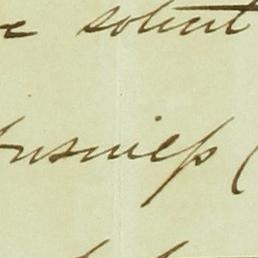 e solicit
business (